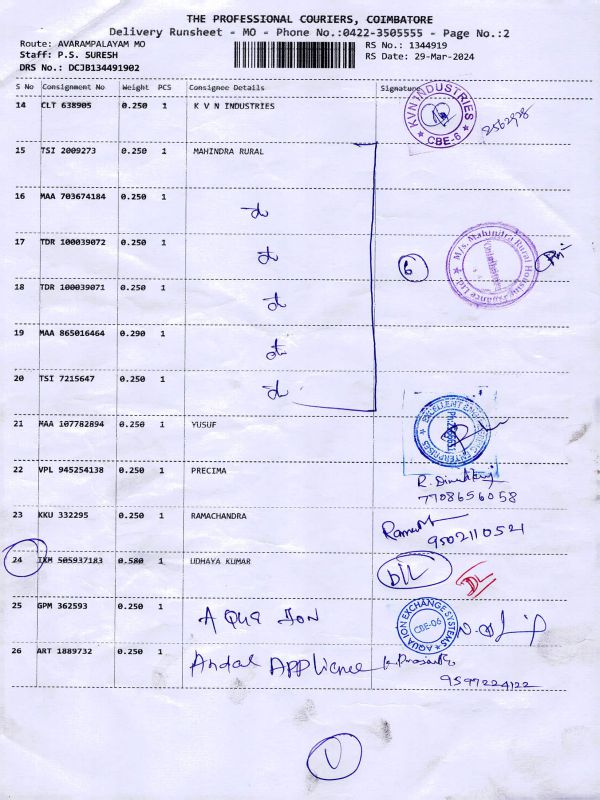 THE PROFESSIONAL COURIERS, COIMBATORE
Delivery Runsheet - MO - Phone No.:0422-3505555 - Page No.:2
Route: AVARAMPALAYAM MO RS No.: 1344919
Staff: P.S. SURESH RS Date: 29-Mar-2024
DRS No.: DCJB134491902
S No Consignment No Weight PCS Consignee Details Signature
14 CLT 638905 0.250 1 K V N INDUSTRIES
KVN INDUSTRIES
CBE-6
15 TSI 2009273 0.250 1 MAHINDRA RURAL
16 MAA 703674184 0.250 1
17 TDR 100039072 0.250 1
6
M/s. Mahindra Rural Housing Finance Ltd.
18 TDR 100039071 0.250 1
19 MAA 865016464 0.290 1
20 TSI 7215647 0.250 1
21 MAA 107782894 0.250 1 YUSUF
EXCELLENT ENTERPRISES
22 VPL 945254138 0.250 1 PRECIMA
7708656058
23 KKU 332295 0.250 1 RAMACHANDRA
9502110521
24 IXM 505937183 0.580 1 UDHAYA KUMAR
D/L
DL
25 GPM 362593 0.250 1 AQUA ION
AQUA ION EXCHANGE SYSTEMS
CBE-06
26 ART 1889732 0.250 1 Andal Applience
9597224122